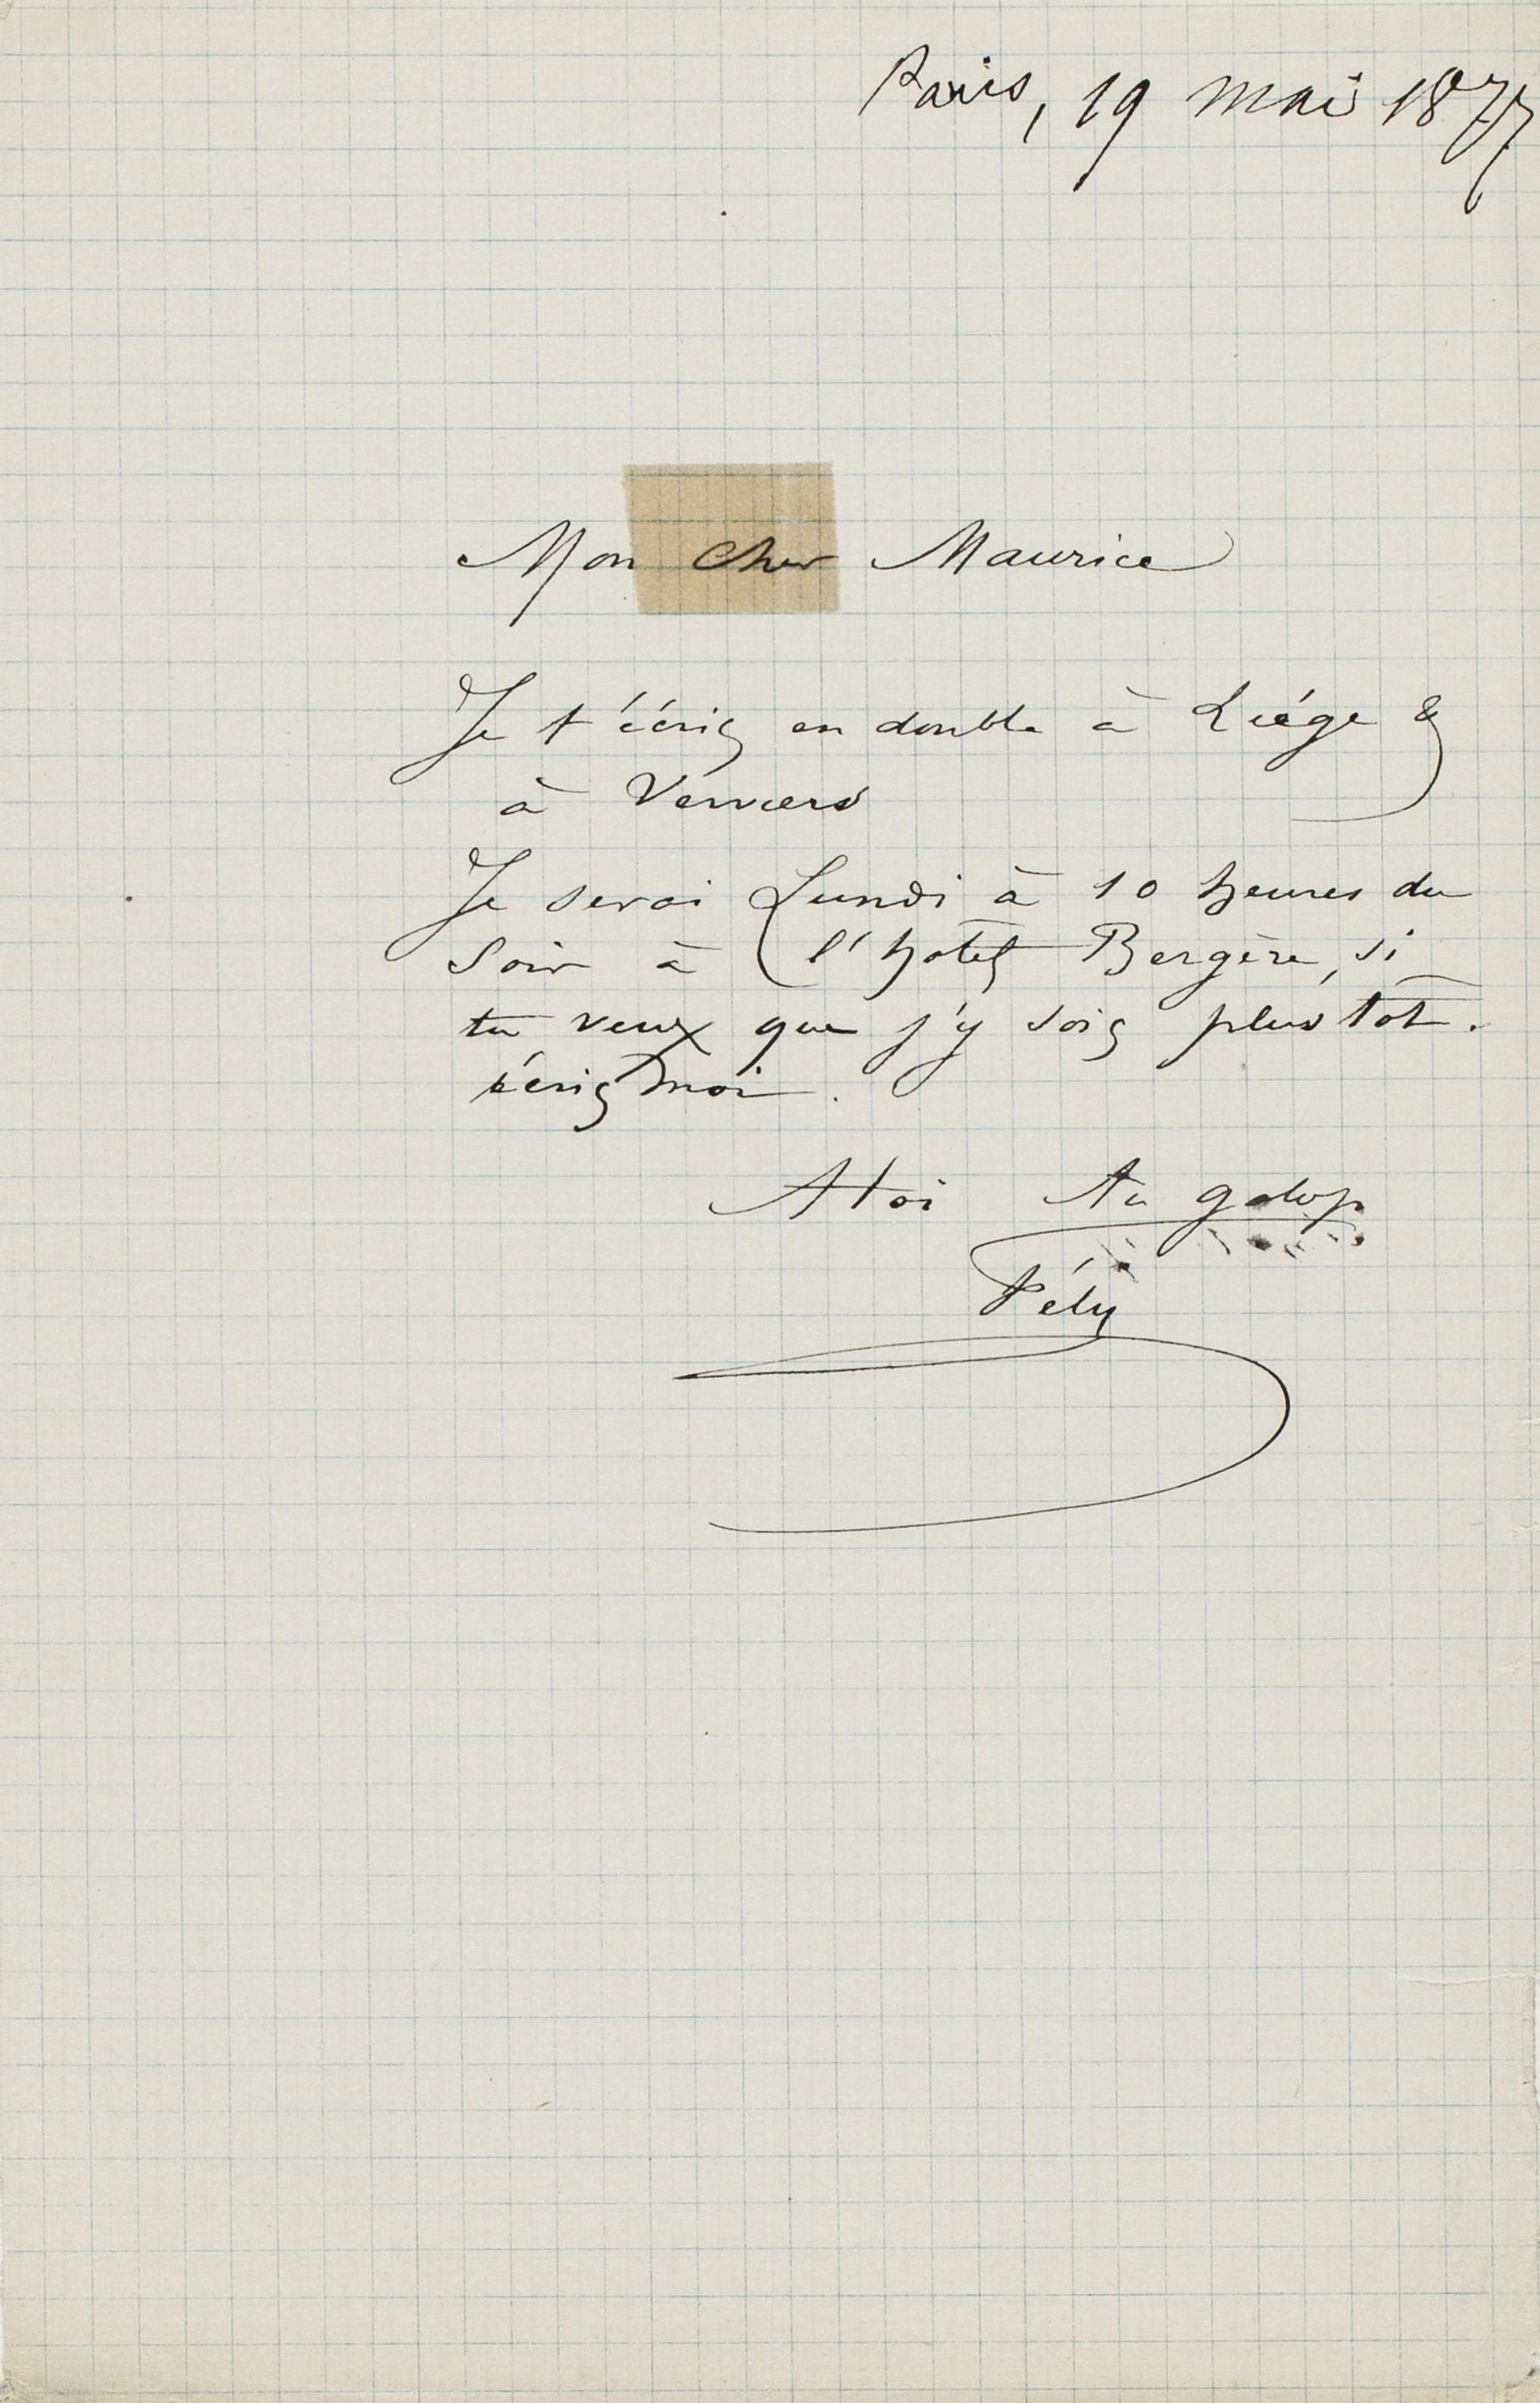 Paris, 19 mai 1877
Mon cher Maurice
Je t'écris en double à Liége &
à Verviers
Je serai Lundi à 10 heures du
soir à l'hotel Bergère, si
tu veux que j'y sois plus tôt.
écris moi.
A toi Au galop
Fély